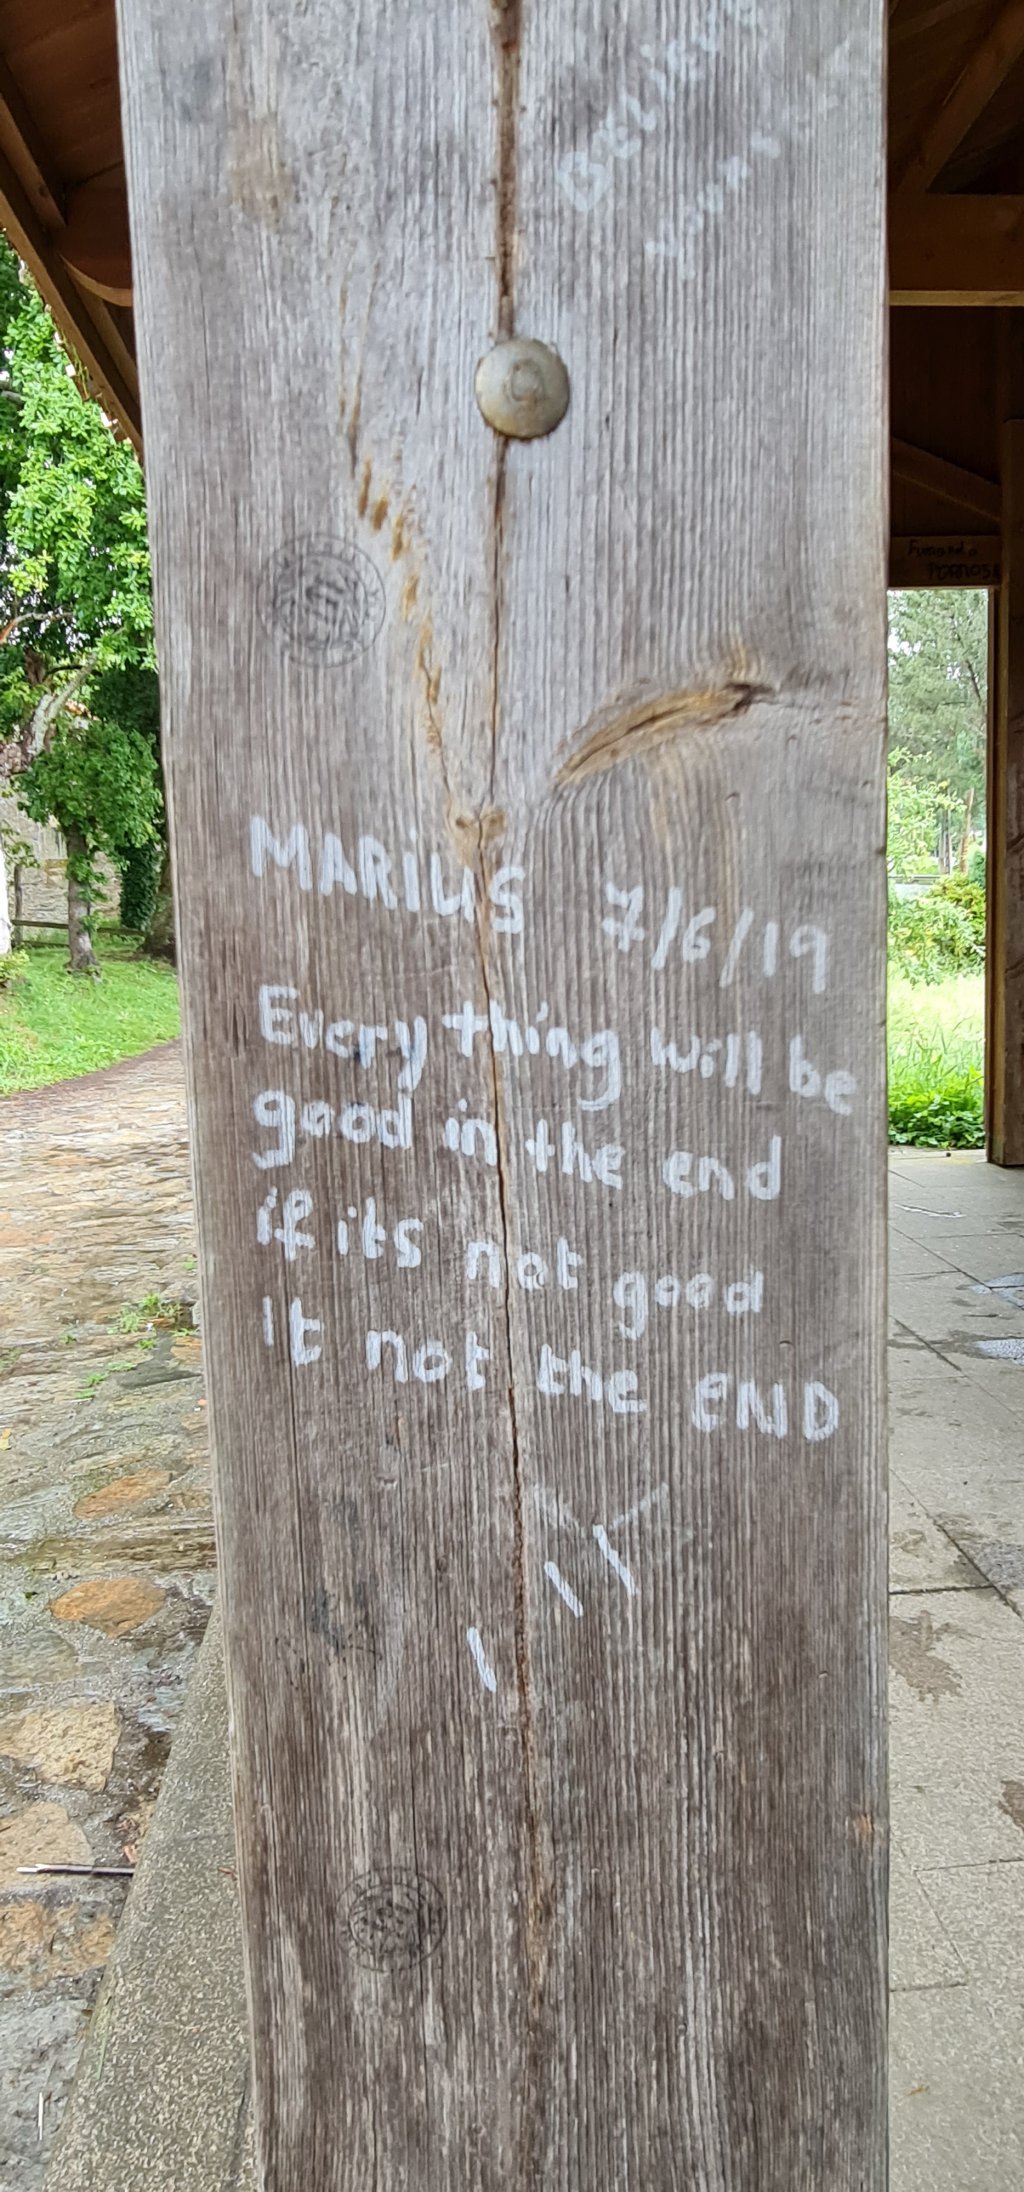 MARiUS 7/6/19
Everything will be
good in the end
if its not good
It not the END